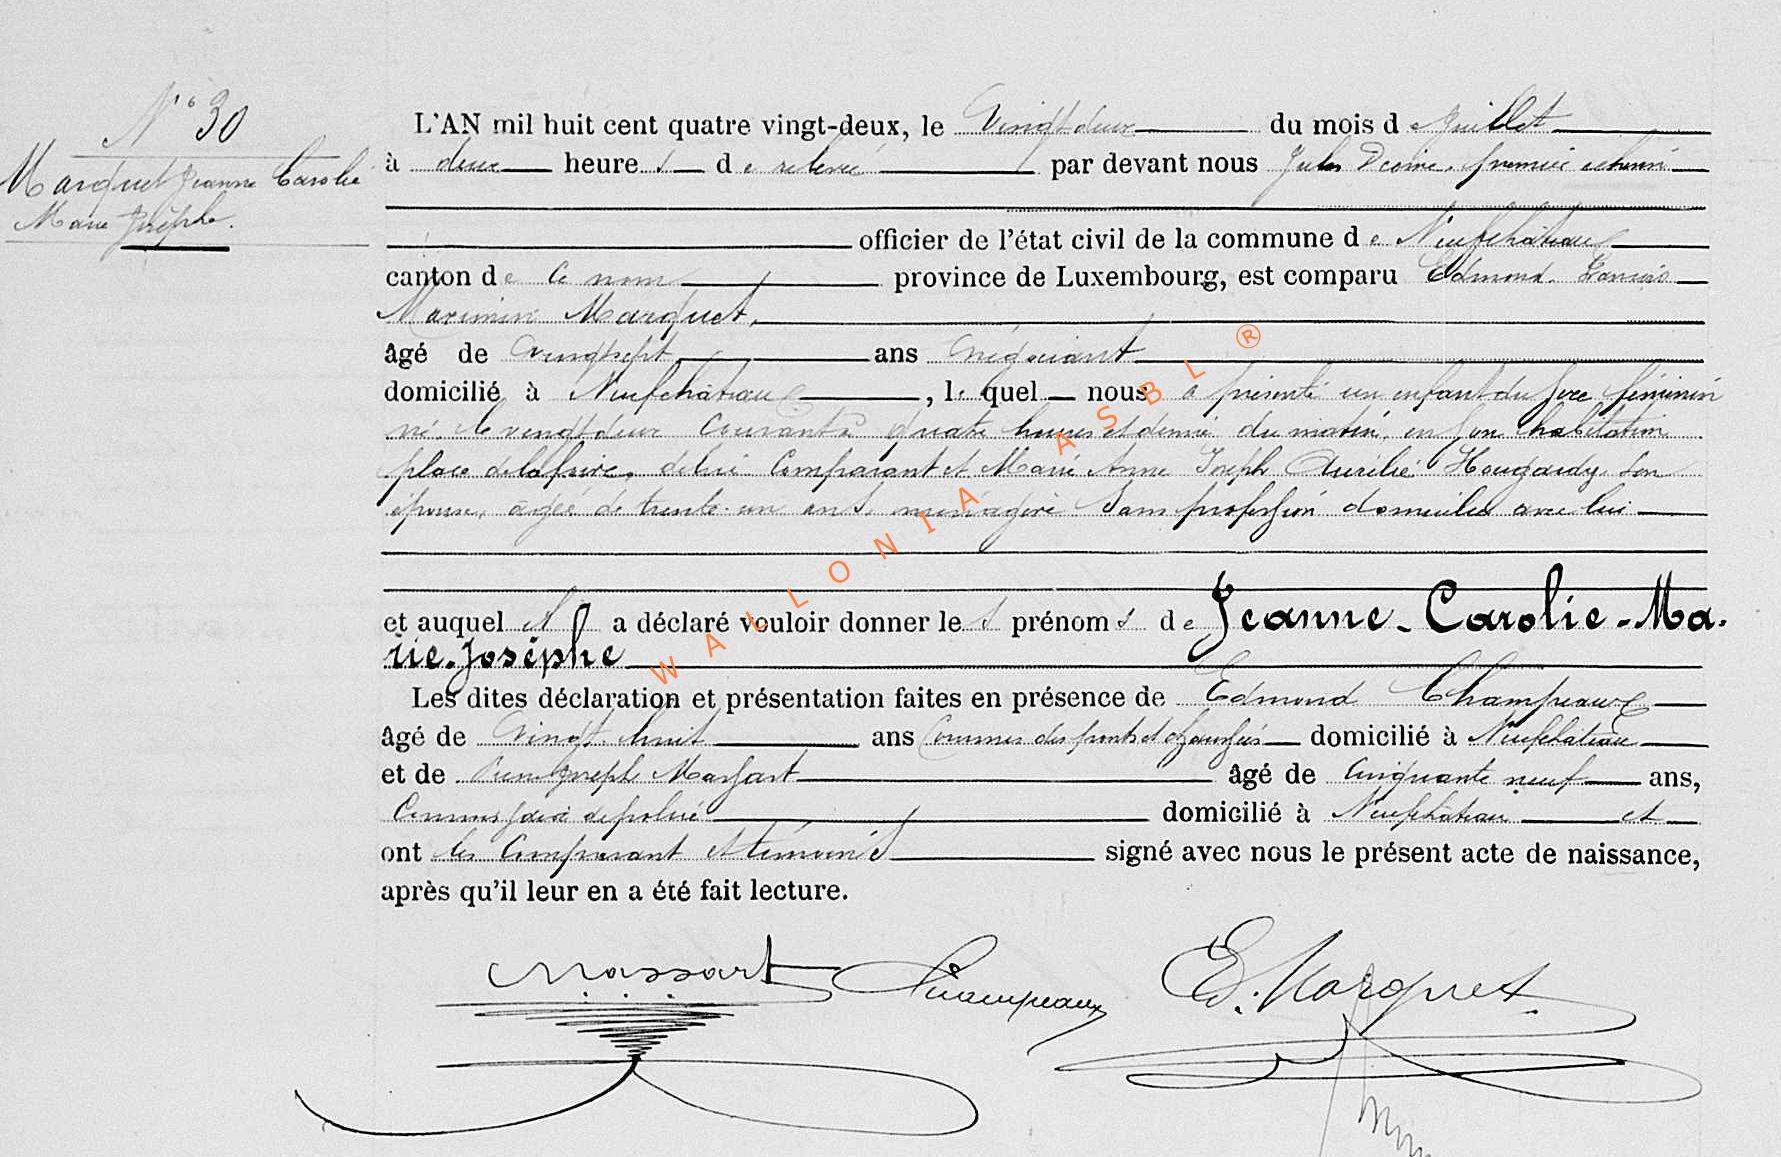 N° 30
Marquet Jeanne Carolie
Marie Josèphe.
L'AN mil huit cent quatre vingt-deux, le Vingt deux du mois de Juillet
à deux heures de relevé par devant nous Jules premier échevin
officier de l'état civil de la commune de Neufchâteau
canton de ce nom province de Luxembourg, est comparu Edmond
Marquet,
âgé de vingt sept ans négociant
domicilié à Neufchâteau, lequel nous a présenté un enfant du sexe féminin
né le vingt deux courant à quatre heures et demie du matin, en son habitation
place de la foire, de lui comparant et Marie Anne Joseph Aurélie Hougardy son
épouse, agée de trente-un ans, ménagère sans profession domiciliée avec lui
et auquel il a déclaré vouloir donner les prénoms de Jeanne-Carolie-Ma-
rie-Josèphe
Les dites déclaration et présentation faites en présence de Edmond Champeaux
âgé de vingt huit ans Commis des ponts et chaussées domicilié à Neufchateau
et de Joseph Massart âgé de cinquante neuf ans,
Commissaire de police domicilié à Neufchâteau et
ont les comparant et témoins signé avec nous le présent acte de naissance,
après qu'il leur en a été fait lecture.
Massart Champeaux Ed. Marquet
WALLONIA ASBL ®